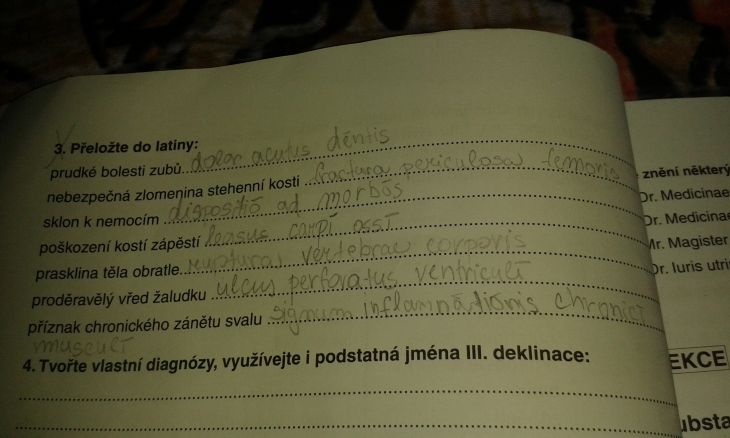 3. Přeložte do latiny:
prudké bolesti zubů dolor acutus dentis
nebezpečná zlomenina stehenní kosti fractura periculosa femoris
sklon k nemocím dispositio ad morbos
poškození kostí zápěstí carpi ossi
prasklina těla obratle ruptura vertebrae corporis
proděravělý vřed žaludku ulcus perforatus ventriculi
příznak chronického zánětu svalu signum inflammationis chronici
musculi
4. Tvořte vlastní diagnózy, využívejte i podstatná jména III. deklinace:
znění některý
Dr. Medicinae
Dr. Medicinae
Mr. Magister
Dr. Iuris utri
EKCE
ubsta